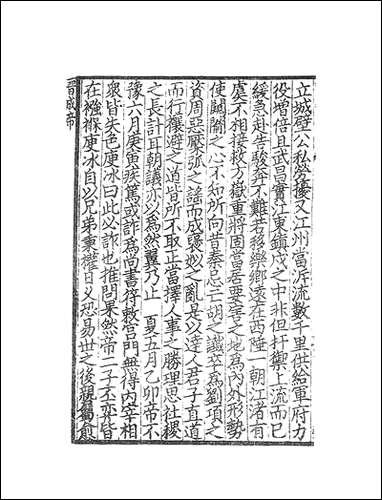 立城壁公私勞擾又江州當泝流數千里供給軍府力
役增倍且武昌實江東鎮戍之中非但扞禦上流而已
緩急赴告駿奔不難若移樂鄉遠在西陸一朝江渚有
虞不相接救方嶽重將固當居要害之地為內外形勢
使闚闞之心不知所向昔秦忌亡胡之讖卒為劉項之
資周惡檿弧之謠而成褒姒之亂是以達人君子直道
而行禳避之道皆所不取正當擇人事之勝理思社稷
之長計耳朝議亦以為然翼乃止 夏五月乙卯帝不
豫六月庚寅疾篤或詐為尚書符敕宮門無得內宰相
衆皆失色庾冰曰此必詐也推問果然帝二子丕奕皆
在襁褓庾冰自以兄弟秉權日乆恐易世之後親屬愈
晉成帝